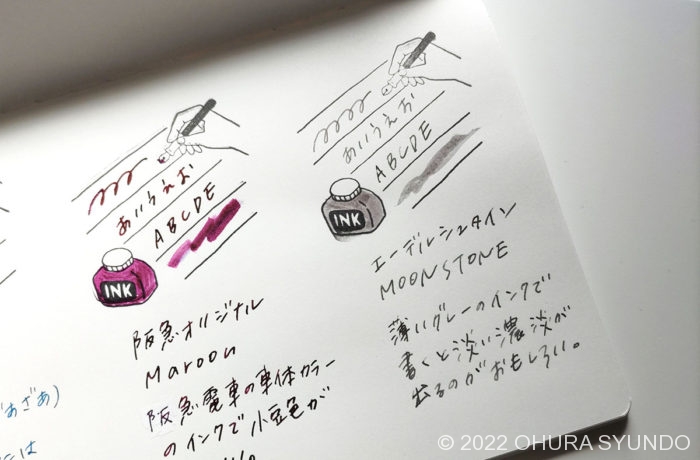 あいうえお
ABCDE
INK
阪急オリジナル
Maroon
阪急電車の車体カラー
のインクで小豆色が
あいうえお
ABCDE
INK
エーデルシュタイン
MOONSTONE
薄いグレーのインクで
書くと淡い濃淡が
出るのがおもしろい。
© 2022 OHURA SYUNDO